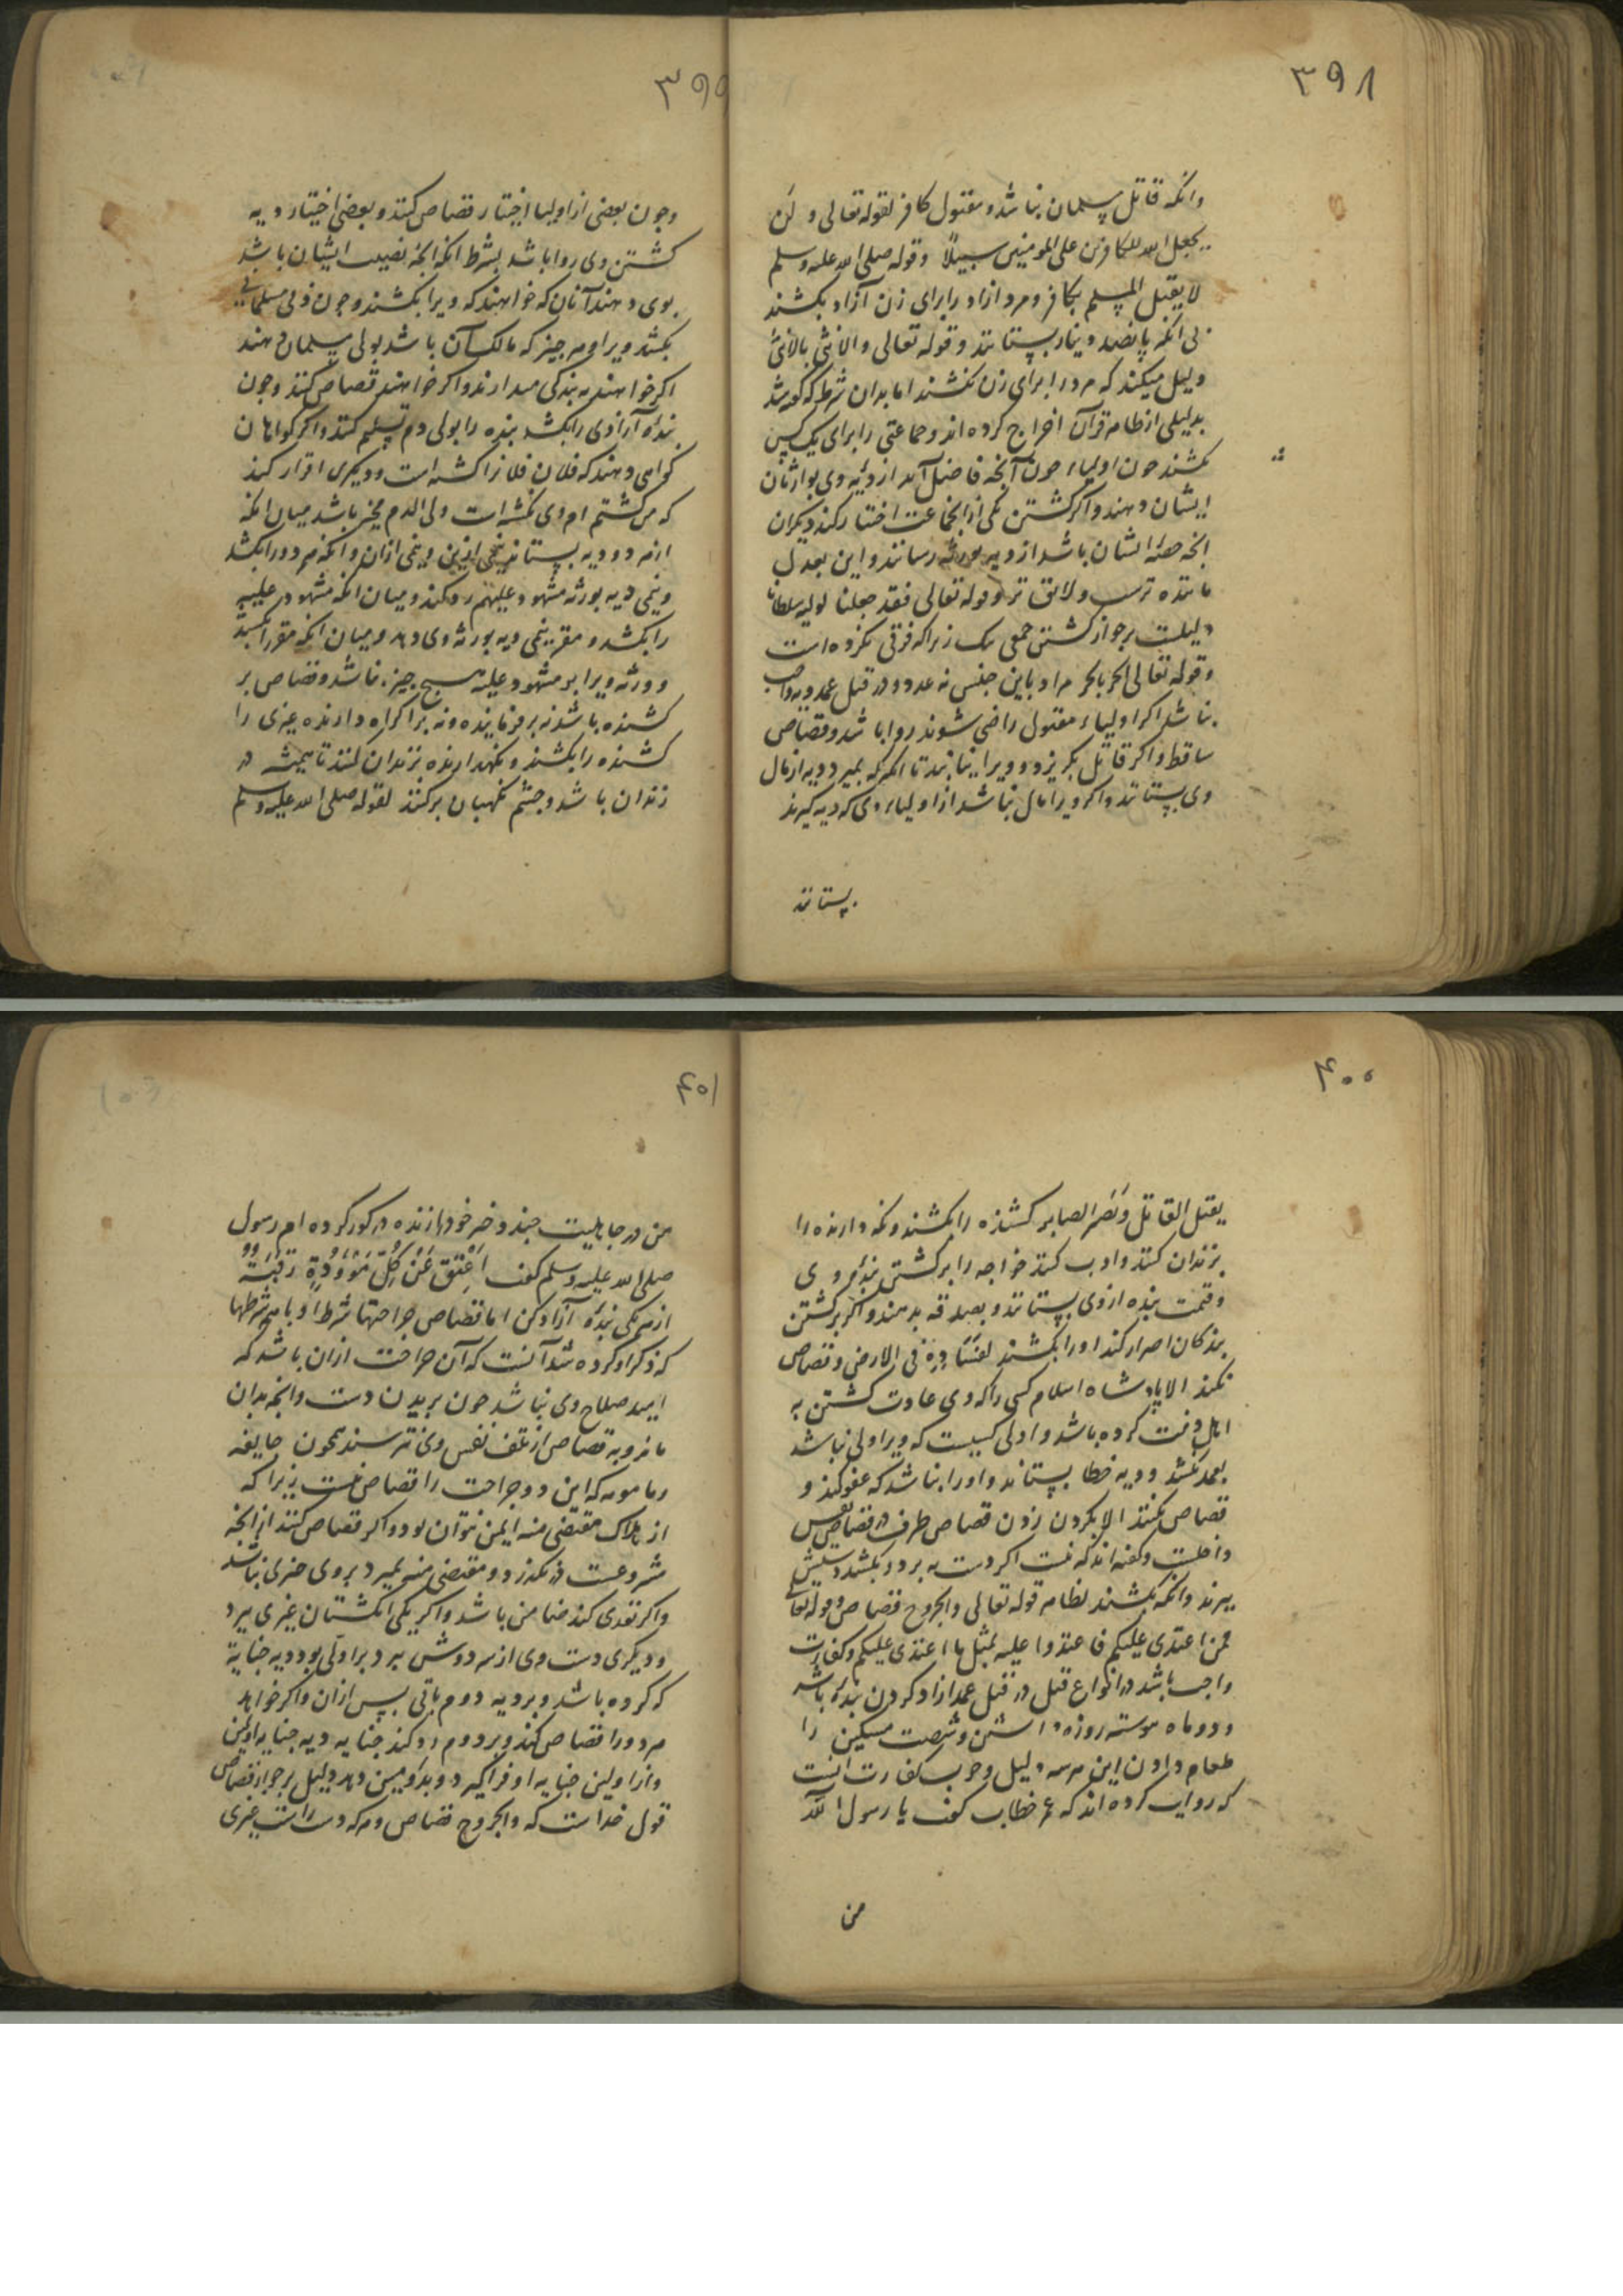 ۳۹۸
وانکه قاتل مسلمان نباشد و مقتول کافر لقوله تعالی و لن
یجعل الله للکافرین علی المومنین سبیلاً وقوله صلی الله علیه وسلم
لا یقتل المسلم بکافر و مرد آزاد را برای زن آزاد بکشند
بی انکه پانصد دینار بستانند و قوله تعالی والانثی بالانثی
دلیل میکند که مرد را برای زن نکشند اما بدان شرط که گفته شد
بدلیلی از ظاهر قرآن اخراج کرده اند و جماعتی را برای یک کس
بکشند چون اولیاء چون آنچه فاضل آمد از دیه وی بوارثان
ایشان دهند و اگر کشتن یکی از انجماعت اختیار کند دیگران
انچه حصه ایشان باشد از دیه بورثه رسانند و این بعدل
ماننده ترست و لائق تر و قوله تعالی فقد جعلنا لولیه سلطانا
دلیلست بر جواز کشتن جمعی بیک زیرا که فرقی نکرده است
وقوله تعالی الحر بالحر مراد باین جنس نه عدد و در قتل عمد دیه واجب
نباشد اگر اولیاء مقتول راضی شوند روا باشد و قصاص
ساقط و اگر قاتل بگریزد و ویرا نیابند تا انکه بمیرد دیه از مال
وی بستانند و اگر ویرا مال نباشد از اولیاء وی که دیه گیرند
بستانند
۳۹۹
وچون بعضی از اولیا اختیار قصاص کنند و بعضی اختیار دیه
کشتن وی روا باشد بشرط انکه انچه نصیب ایشان باشد
بوی دهند آنان که خواهند که ویرا بکشند و چون ذمی مسلمانی
بکشد ویرا و هر چیز که مالک آن باشد بولی مسلمان دهند
اگر خواهند به بندگی میدارند و اگر خواهند قصاص کنند و چون
بندهٔ آزادی را بکشد بنده را بولی دم تسلیم کنند و اگر گواهان
گواهی دهند که فلان فلانرا کشته است و دیگری اقرار کند
که من کشتم ام و وی نکشته است ولی الدم مخیر باشد میان انکه
از هر دو دیه بستاند نیمی ازین و نیمی ازان و انکه هر دو را بکشد
و نیمی دیه بورثه مشهود علیهم رد کند و میان انکه مشهود علیه
را بکشد و مقر نیمی دیه بورثه وی دهد و میان انکه مقر را بکشد
و ورثه ویرا بر مشهود علیه هیچ چیز نباشد و قصاص بر
کشنده باشد نه بر فرماینده و نه بر اکراه دارنده غیری را
کشنده را بکشند و نگهدارنده بزندان کنند تا همیشه در
زندان باشد و چشم نگهبان برکنند لقوله صلی الله علیه وسلم
۴۰۰
یقتل القاتل و یصبر الصابر کشنده را بکشند و نگه دارنده را
بزندان کنند و ادب کنند خواجه را بر کشتن بندهٔ وی
و قیمت بنده از وی بستانند و بصدقه بدهند و اگر بر کشتن
بندگان اصرار کند او را بکشند لفساده فی الارض و قصاص
نکند الا پادشاه اسلام کسی را که وی عادت کشتن به
اهل ذمت کرده باشد و اولی کسیست که ویرا ولی نباشد
بعمد بکشد و دیه خطا بستاند و او را نباشد که عفو کند و
قصاص نکنند الا بگردن زدن قصاص طرف در قصاص نفس
داخلست و گفته اند که نیست اگر دست ببرد و بکشد دستش
ببرند وانکه بکشند لظاهر قوله تعالی والجروح قصاص و قوله تعالی
فمن اعتدی علیکم فاعتدوا علیه بمثل ما اعتدی علیکم و کفارت
واجب باشد در انواع قتل در قتل عمد ازاد کردن بندهٔ باشد
و دو ماه پیوسته روزه داشتن و شصت مسکین را
طعام دادن این هر سه دلیل وجوب کفارت انست
که روایت کرده اند که عمر خطاب گفت یا رسول الله
من
۴۰۱
من در جاهلیت چند دختر خود را زنده در گور کرده ام رسول
صلی الله علیه وسلم گفت اَعْتِقْ عَنْ کُلِّ مَوْؤُدَةٍ رَقَبَةً
از هر یکی بندهٔ آزاد کن اما قصاص جراحتها شرط او با هم شرطها
که ذکر او کرده شد آنست که آن جراحت ازان باشد که
امید صلاح وی نباشد چون بریدن دست وانچه بدان
ماند و به قصاص از تلف نفس وی نترسند همچون جایفه
و مامومه که این دو جراحت را قصاص نیست زیرا که
از هلاک مقتضی منه ایمن نتوان بود و اگر قصاص کنند از انچه
مشروعست در نگذرد و مقتضی منه بمیرد بر وی چیزی نباشد
واگر تعدی کند ضامن باشد و اگر یکی انگشتان غیری ببرد
و دیگری دست وی از سر دوش ببرد بر اولی بود دیه جنایة
که کرده باشد و بر دیه دوم باقی پس ازان و اگر خواهد
هر دو را قصاص کند و بر دوم رد کند جنایه دیه جنایه اولین
و از اولین جنایه او فرا گیرد و بدومین دهد دلیل بر جواز قصاص
قول خداست که والجروح قصاص و هر که دست راست غیری